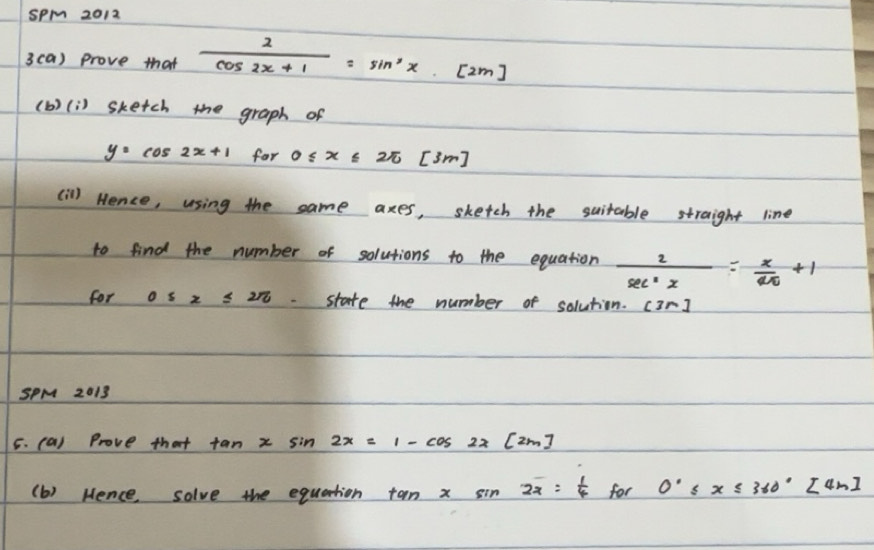 SPM 2012
3(a) Prove that 2/(cos 2x + 1) = sin² x. [2m]
(b)(i) Sketch the graph of
y = cos 2x + 1 for 0 ≤ x ≤ 2π [3m]
(ii) Hence, using the same axes, sketch the suitable straight line
to find the number of solutions to the equation 2/(sec² x) = x/(4π) + 1
for 0 ≤ x ≤ 2π. State the number of solution. [3m]
SPM 2013
5. (a) Prove that tan x sin 2x = 1 - cos 2x [2m]
(b) Hence, solve the equation tan x sin 2x = 1/4 for 0° ≤ x ≤ 360° [4m]